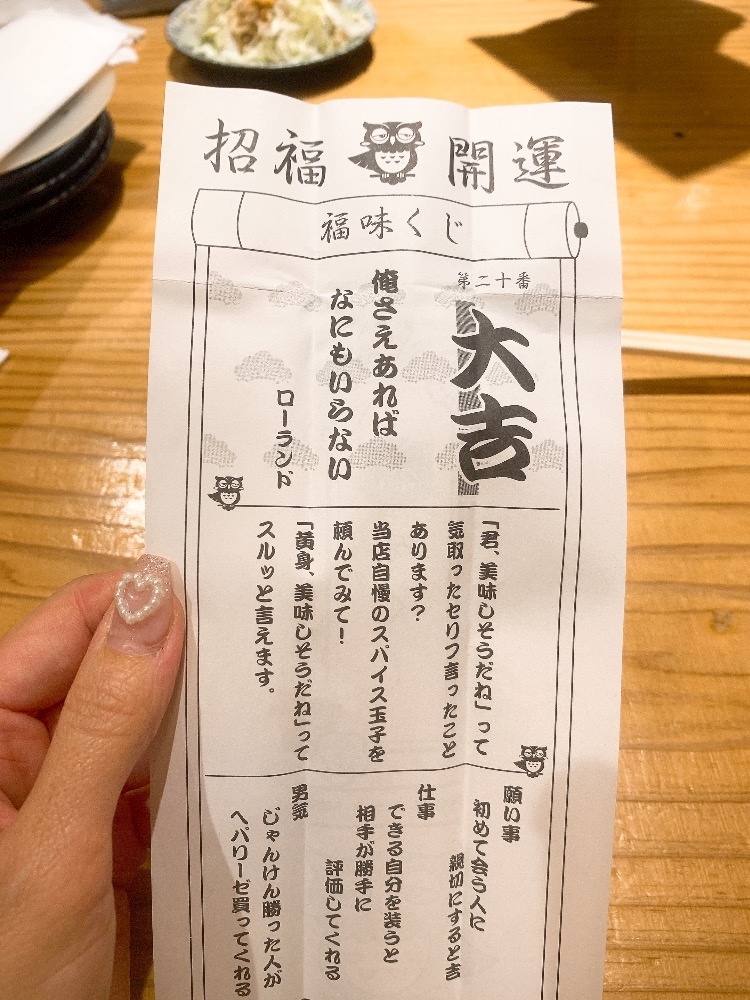 招福 開運
福味くじ
第二十番
大吉
俺さえあれば
なにもいらない
ローランド
「君、美味しそうだね」って
気取ったセリフ言ったこと
あります？
当店自慢のスパイス玉子を
頼んでみて！
「黄身、美味しそうだね」って
スルッと言えます。
願い事
初めて会う人に
親切にすると吉
仕事
できる自分を装うと
相手が勝手に
評価してくれる
男気
じゃんけん勝った人が
ヘパリーゼ買ってくれる